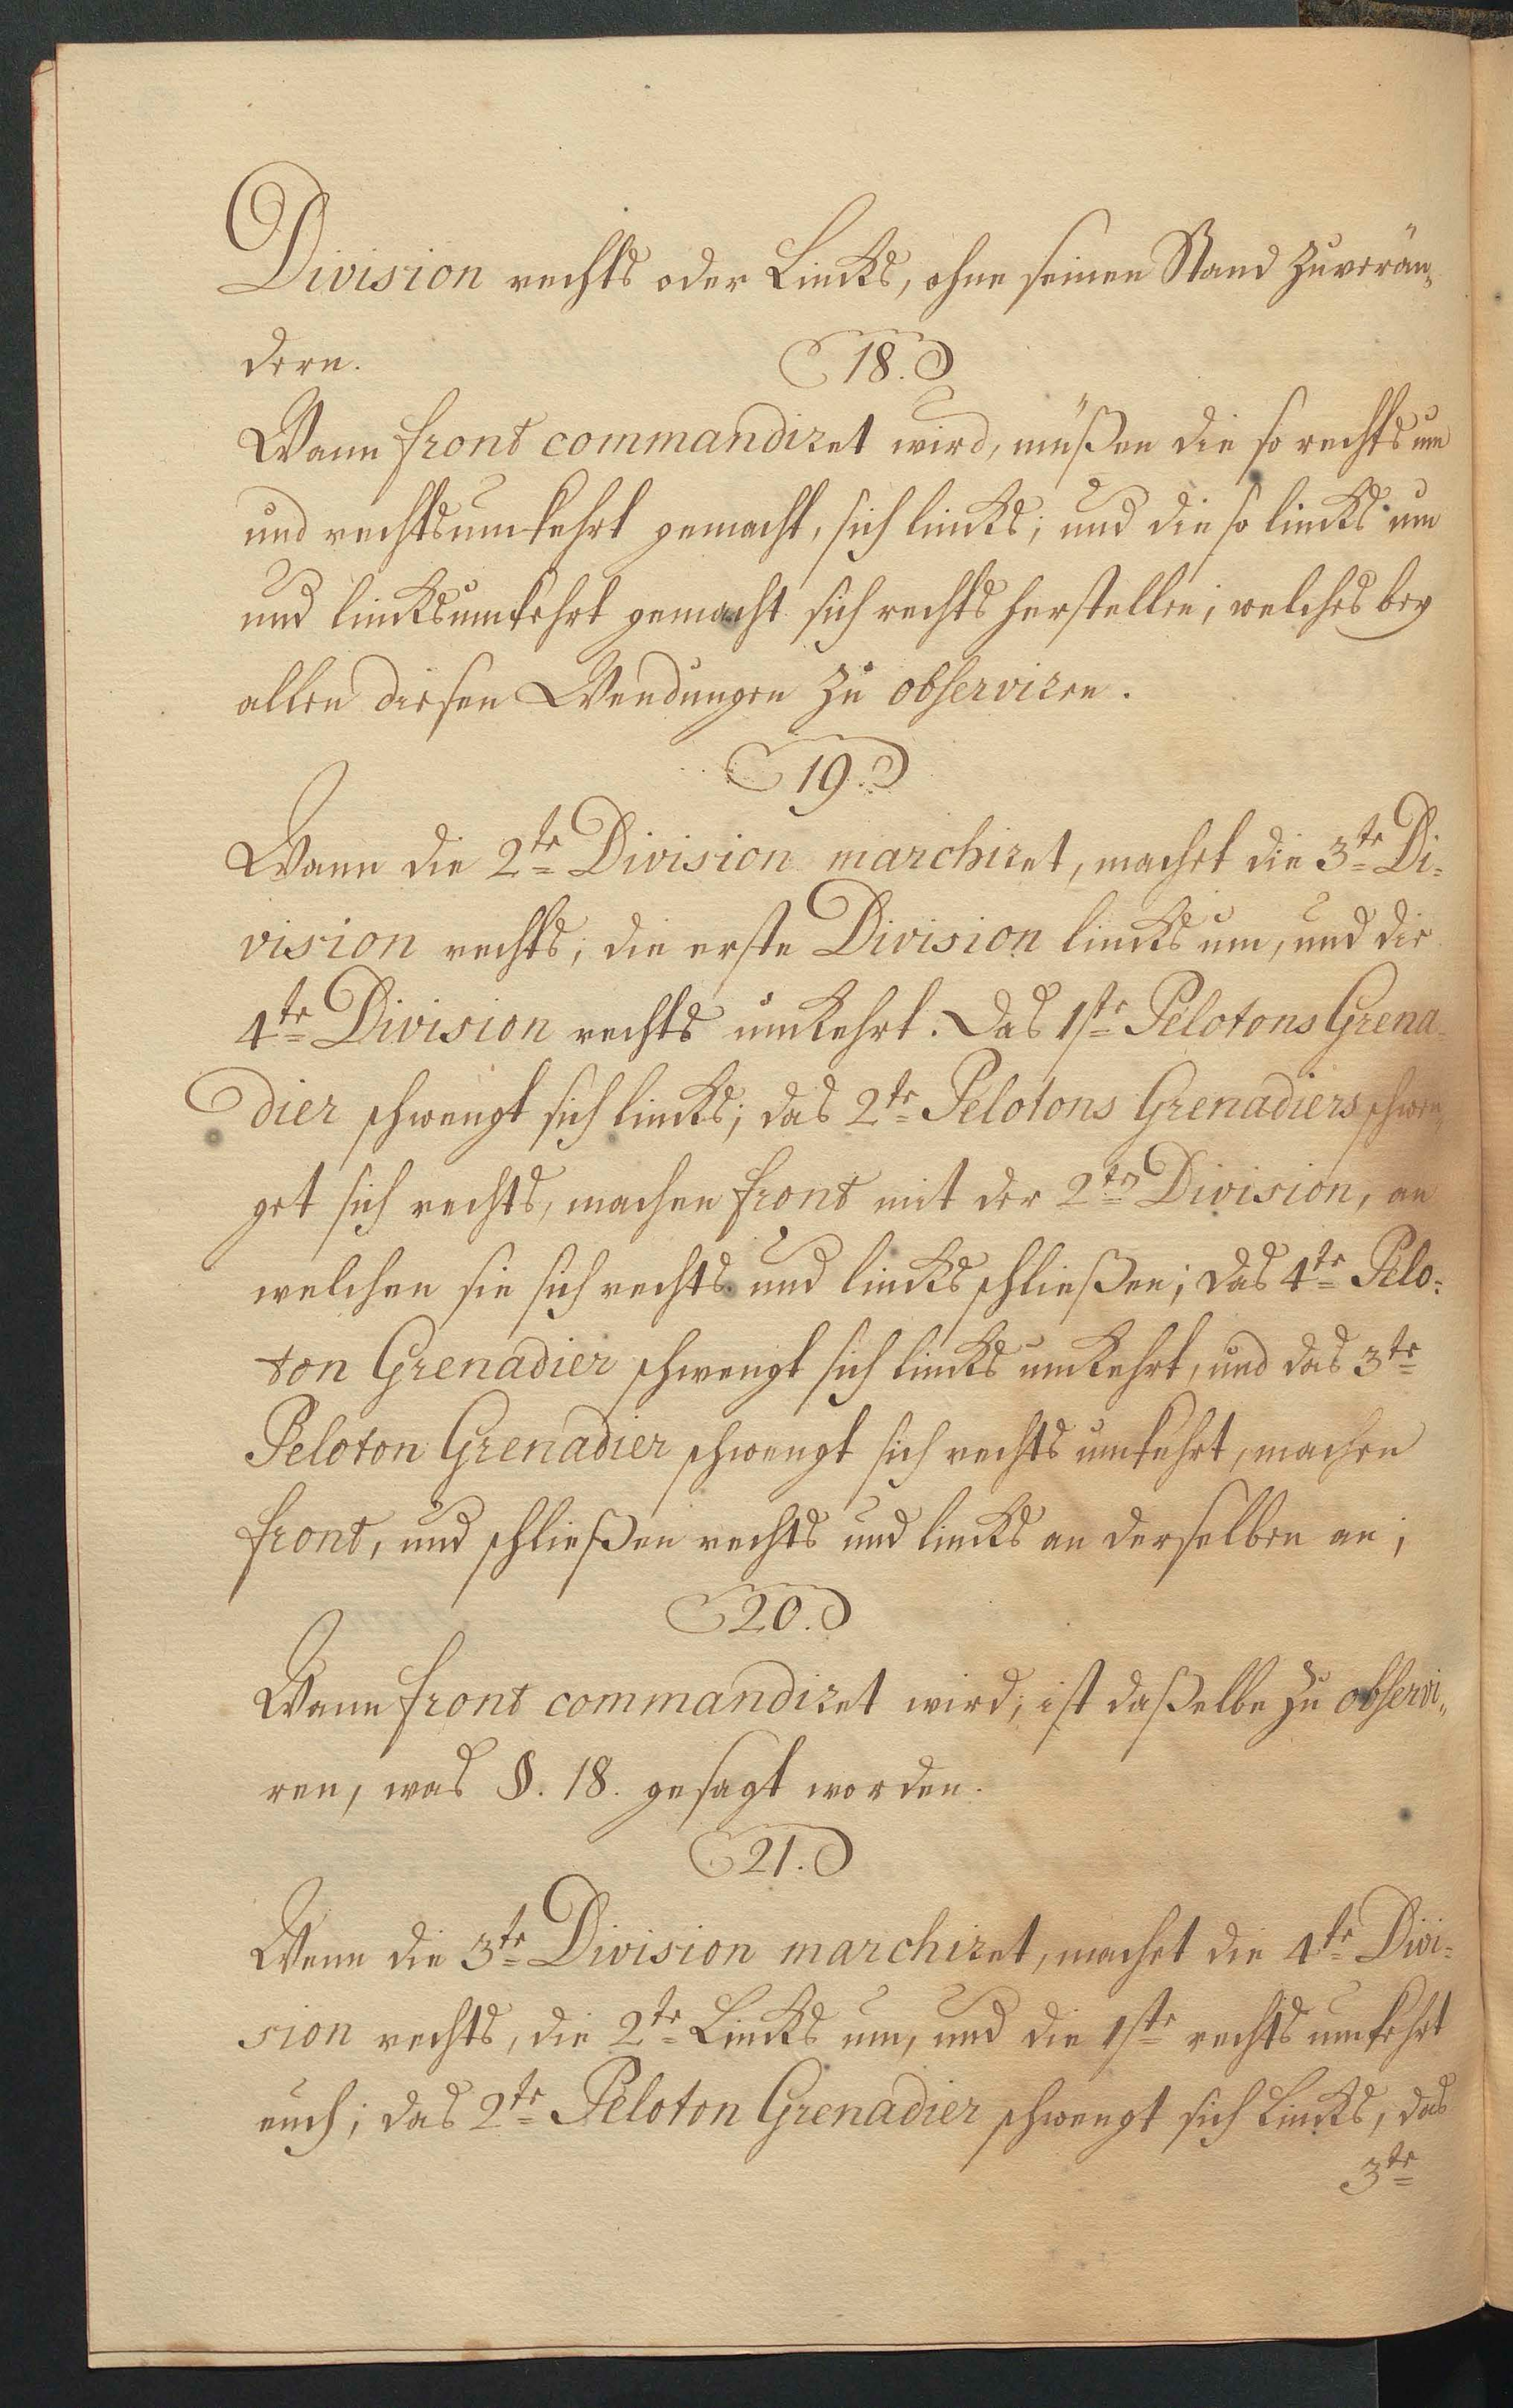 Division rechts oder Lincks, ohne seinen Stand zuverän„
dern.
18.
Wann front commandiret wird, müßen die so rechts um
und rechtsumkehrt gemacht, sich lincks; und die so lincks um
und lincksumkehrt gemacht sich rechts herstellen; welches bey
allen diesen Wendungen zu observiren.
19.
Wann die 2te Division marchiret, machet die 3te Di=
vision rechts; die erste Division lincks um, und die
4te Division rechts umkehrt. Das 1ste Pelotons Grena=
dier schwengt sich lincks; das 2te Pelotons Grenadiers schwen„
get sich rechts, machen front mit der 2ten Division, an
welchen sie sich rechts und lincks schließen; das 4te Pelo=
ton Grenadier schwengt sich lincks umkehrt, und das 3te
Peloton Grenadier schwengt sich rechts umkehrt, machen
front, und schließen rechts und lincks an derselben an;
20.
Wann front commandiret wird, ist daßelbe zu observi„
ren, was §. 18. gesagt worden.
21.
Wenn die 3te Division marchiret, machet die 4te Divi=
sion rechts, die 2te Lincks um, und die 1ste rechts umkehrt
euch; das 2te Peloton Grenadier schwengt sich Lincks, das
3te